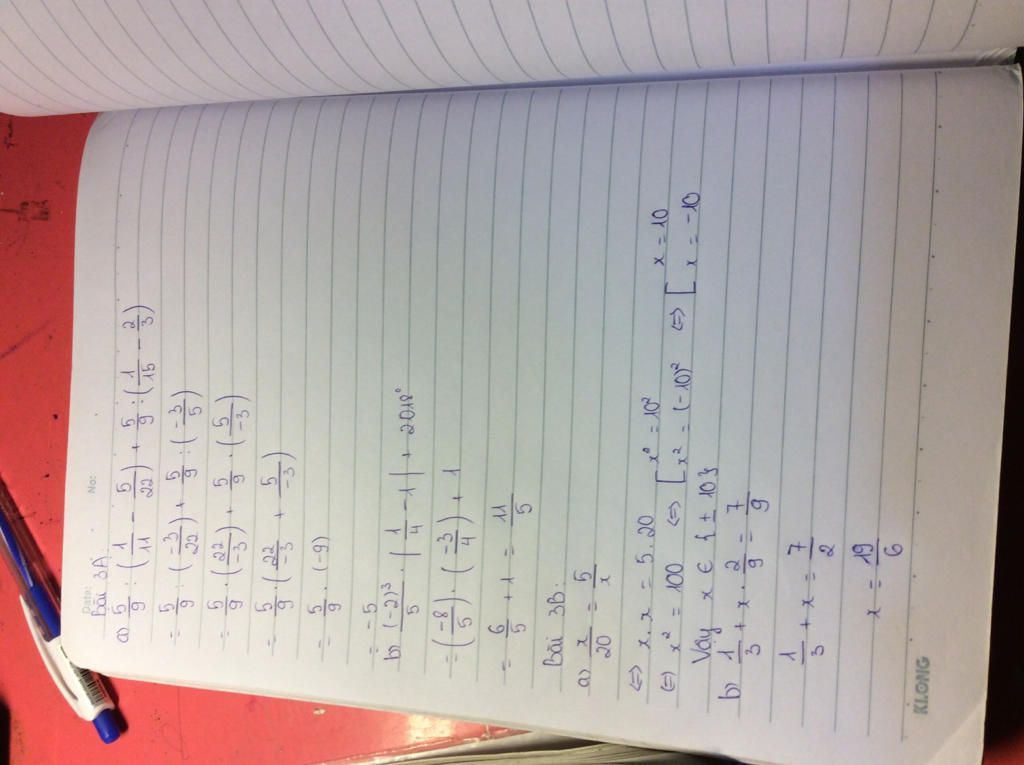 Date: No:
Bài 3A
a) 5/9 : (1/11 - 5/22) + 5/9 : (1/15 - 2/3)
= 5/9 : (-3/22) + 5/9 : (-3/5)
= 5/9 . (22/-3) + 5/9 . (5/-3)
= 5/9 . (22/-3 + 5/-3)
= 5/9 . (-9)
= -5
b) (-2)³/5 . |1/4 - 1| + 2018⁰
= (-8/5) . (-3/4) + 1
= 6/5 + 1 = 11/5
Bài 3B:
a) x/20 = 5/x
(=) x . x = 5 . 20
(=) x² = 100 (=) [ x² = 10² x² = (-10)² (=) [ x = 10 x = -10
Vay x ∈ {± 10}
b) 1/3 + x . 2/9 = 7/9
1/3 + x = 7/2
x = 19/6
KLONG